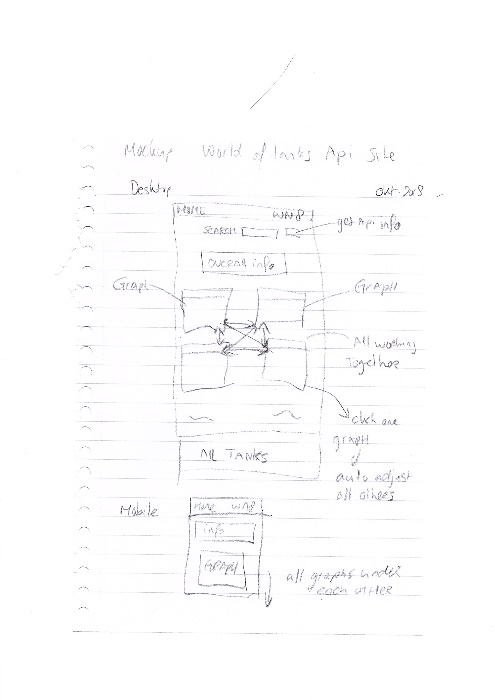 Mockup World of tanks Api Site
Desktop
HOME WN8
SEARCH
get Api info
overall info
Graph
GRAPH
All working
Together
click one
graph
auto adjust
all others
All TANKS
Mobile
HOME WN8
info
GRAPH
all graphs under
each other